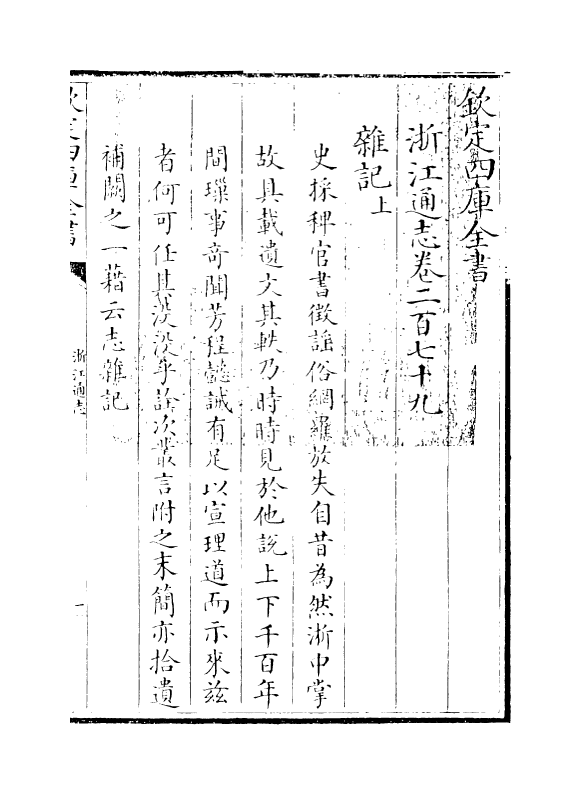 欽定四庫全書
浙江通志卷二百七十九
雜記上
史採稗官書徵謡俗網羅放失自昔為然浙中掌
故具載遺文其軼乃時時見於他說上下千百年
間璅事竒聞芳程懿誡有足以宣理道而示來兹
者何可任其沒沒乎詮次叢言附之末簡亦拾遺
補闕之一藉云志雜記
欽定四庫全書
浙江通志
一